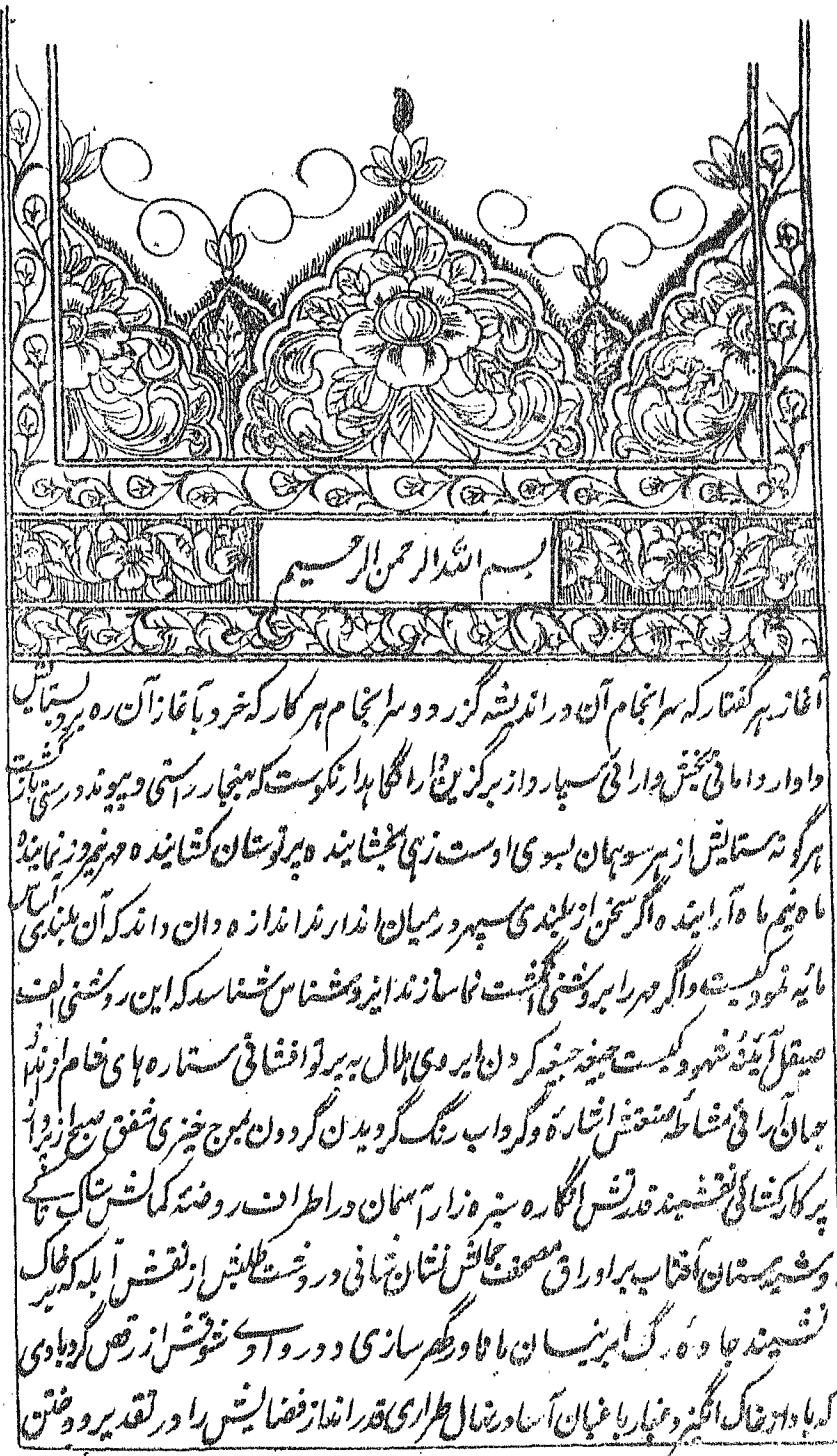 بسم الله الرحمن الرحیم
آغاز ہر گفتار کہ سرانجام آن در اندیشہ گزرد و سرانجام ہر کار کہ خرد بآغاز آن رہ برد بستایش
داوار دامانی بخش دارائی سپار و از برگزین ار نگاہدار نکوست کہ ہنجار راستی و پیوند درستی بازگشت
ہر گونہ ستایش از ہر سو ہمان بسوی اوست زہی بخشایندہ پرتوستان کشایندہ مہر نیمروز نمایندہ
ماہ نیم ماہ آرایندہ اگر سخن از بلندی سپہر در میان اندارند اندازہ دان داند کہ آن بلندی اساس
مایہ نمود کیست و اگر مہر را بروشنی انگشت نما سازند ایزد شناس شناسد کہ این روشنی الف
صیقل آینہ شہود کیست جبیغہ جبیغہ کردن ابروی ہلال بہ پرتو افشانی ستارہ های فام از انداز
جہان آرائی مشاطہ صنعتش اشارہ و گرداب رنگ گردیدن گردون بموج خیزی شفق صبح از پرداز
پرکار کشائی نقشبند قدرتش انگارہ سبزہ زار آسمان در اطراف روضہ کمالش تاک تاکے
و شبستان آفتاب بر اوراق مصحف جمالش نشان ثانی در دشت طلبش از نقش آبلہ کہ بر خاک
نشیند جادہ رگ ابر نیسان ماند در گہر سازی و در وادے شوقش از رقص گردبادی
کہ باد خاک انگیز و غبار باغبان آسا در نہال طرازی قدر انداز فضایش را در تقدیر و دوختن